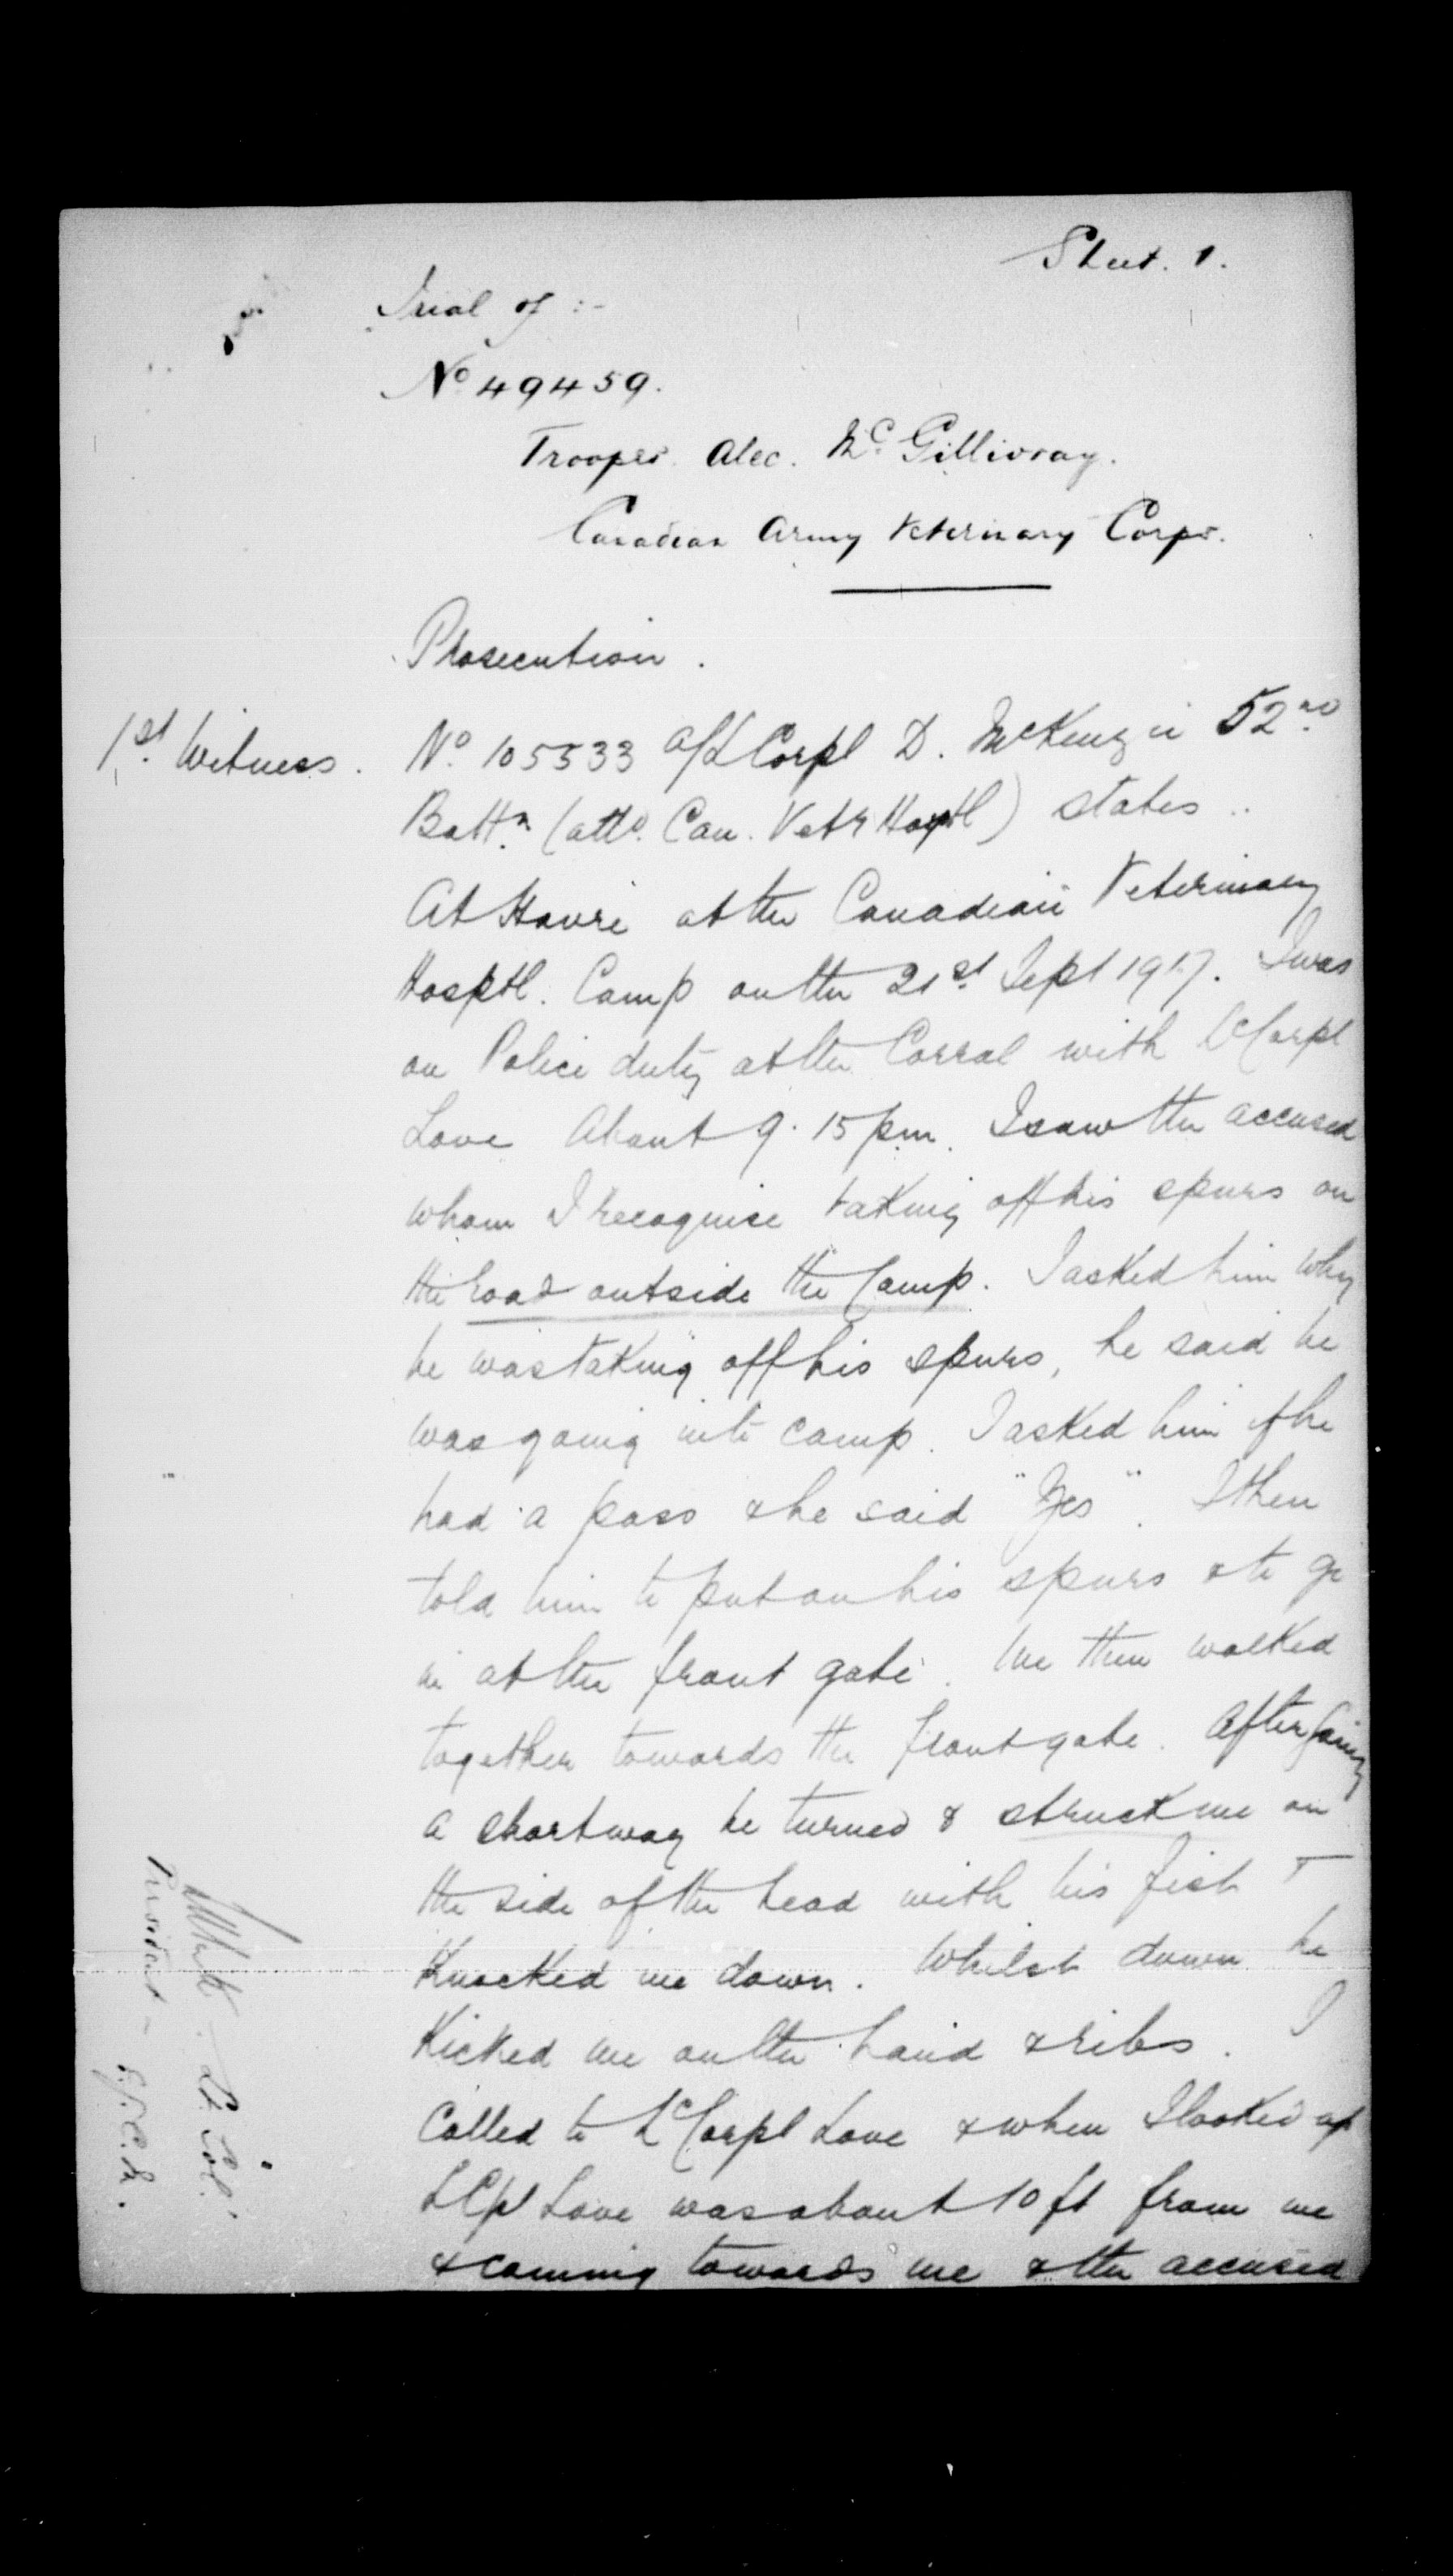 Sheet. 1.
Trial of :-
No 49459.
Trooper. Alec. McGillivray.
Canadian Army Veterinary Corps.
Prosecution.
1st Witness. No 105533 A/L Corpl D. McKenzie 52nd
Battn. (attd. Can. Vetr Hosptl) states ..
At Havre at the Canadian Veterinary
Hosptl. Camp on the 21st Sept 1917. I was
on Police duty at the Corral with L/Corpl
Love About 9.15 pm. I saw the accused
whom I recognise taking off his spurs on
the road outside the Camp. I asked him why
he was taking off his spurs, he said he
was going into camp. I asked him if he
had a pass & he said "Yes". I then
told him to put on his spurs & to go
in at the front gate. We then walked
together towards the front gate. After going
a short way he turned & struck me on
the side of the head with his fist
Knocked me down. Whilst down he
Kicked me on the hand & ribs. I
Called to LCorpl Love & when I looked up
LCpl Love was about 10 ft from me
& coming towards me & the accused
Lt. Col.
President -